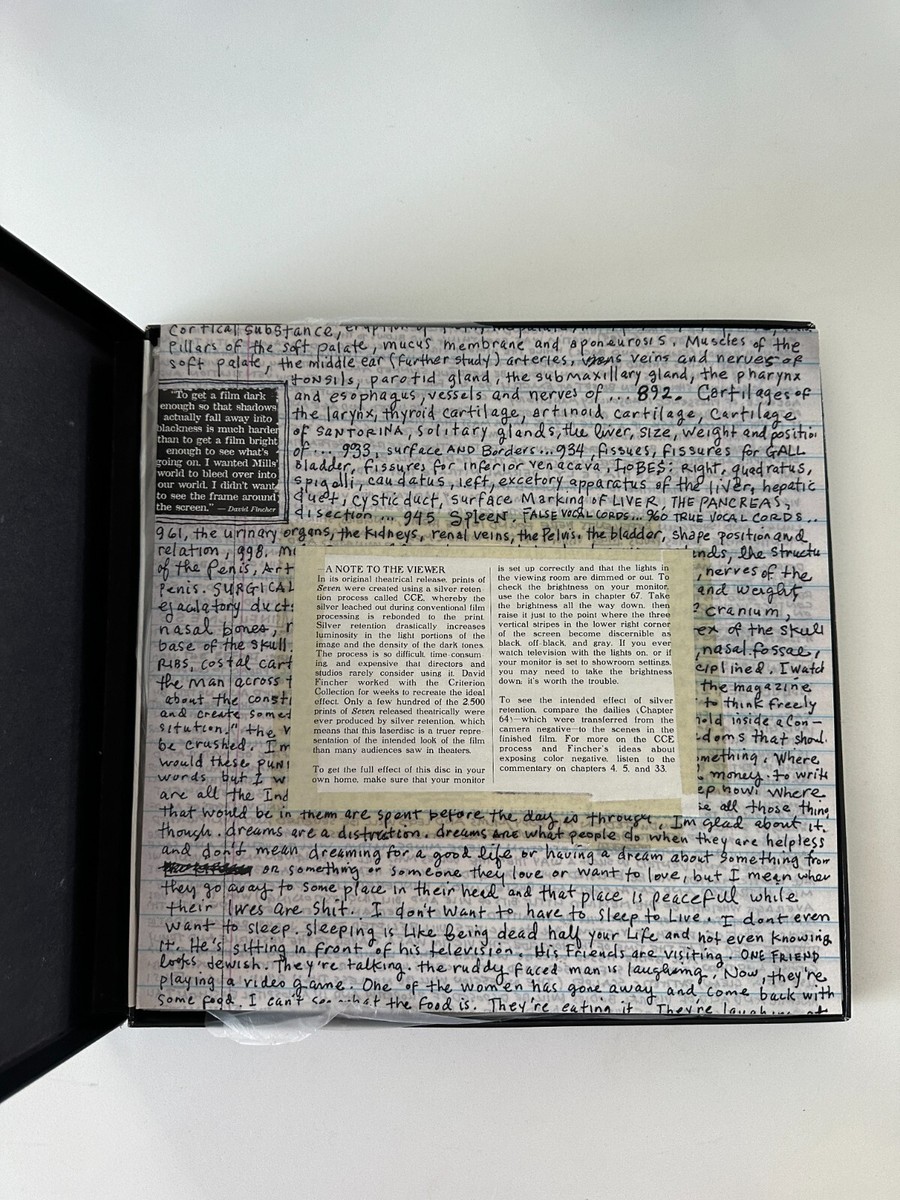 Cortical substance,
Pillars of the soft palate, mucus membrane and aponeurosis. Muscles of the
soft palate, the middle ear (further study) arteries, veins and nerves of
tonsils, parotid gland, the submaxillary gland, the pharynx
and esophagus, vessels and nerves of ... 892. Cartilages of
the larynx, thyroid cartilage, artinoid cartilage, Cartilage
of SANTORINA, solitary glands, the liver, size, weight and positio
of ... 933, surface AND Borders ... 934, fissues, fissures for GALL
Bladder, fissures for inferior vena cava, LOBES: Right, quadratus,
spigolli, caudatus, left, excetory apparatus of the liver, hepatic
duct, cystic duct, surface Marking of LIVER, THE PANCREAS,
disection ... 945 Spleen, FALSE VOCAL CORDS ... 960 TRUE VOCAL CORDS ..
"To get a film dark
enough so that shadows
actually fall away into
blackness is much harder
than to get a film bright
enough to see what's
going on. I wanted Mills'
world to bleed over into
our world. I didn't want
to see the frame around
the screen." — David Fincher
961, the urinary organs, the kidneys, renal veins, the Pelvis. the bladder, shape position and
relation, 998, m
of the Penis, Art
Penis. SURGICAL
ejaculatory duct
nasal bones,
base of the skull.
RIBS, costal cart
the man across t
about the consti
and create somet
situtions" the
be crushed. I'm
would these puni
words, but I w
are all the Ind
A NOTE TO THE VIEWER
In its original theatrical release, prints of
Seven were created using a silver reten-
tion process called CCE, whereby the
silver leached out during conventional film
processing is rebonded to the print.
Silver retention drastically increases
luminosity in the light portions of the
image and the density of the dark tones.
The process is so difficult, time-consum-
ing, and expensive that directors and
studios rarely consider using it. David
Fincher worked with the Criterion
Collection for weeks to recreate the ideal
effect. Only a few hundred of the 2,500
prints of Seven released theatrically were
ever produced by silver retention, which
means that this laserdisc is a truer repre-
sentation of the intended look of the film
than many audiences saw in theaters.
To get the full effect of this disc in your
own home, make sure that your monitor
is set up correctly and that the lights in
the viewing room are dimmed or out. To
check the brightness on your monitor,
use the color bars in chapter 67. Take
the brightness all the way down, then
raise it just to the point where the three
vertical stripes in the lower right corner
of the screen become discernible as
black, off-black, and gray. If you ever
watch television with the lights on, or if
your monitor is set to showroom settings,
you may need to take the brightness
down; it's worth the trouble.
To see the intended effect of silver
retention, compare the dailies (Chapter
64)—which were transferred from the
camera negative—to the scenes in the
finished film. For more on the CCE
process and Fincher's ideas about
exposing color negative, listen to the
commentary on chapters 4, 5, and 33.
nds, the structu
, nerves of the
and weight
cranium,
ex of the skull
, nasal fossae,
ciplined. I watch
the magazine
to think freely
hold inside a con-
doms that shoul
omething. Where
money to write
ep now? Where
se all those thing
that would be in them are spent before the day is through. I'm glad about it,
though. dreams are a distraction. dreams are what people do when they are helpless
and don't mean dreaming for a good life or having a dream about something from
or something or someone they love or want to love, but I mean when
they go away to some place in their head and that place is peaceful while
their lives are shit. I don't want to have to sleep to Live. I dont even
want to sleep. Sleeping is Like Being dead half your Life and not even knowing
it. He's sitting in front of his television. His Friends are visiting. ONE FRIEND
looks Jewish. They're talking. the ruddy faced man is laughing. Now, they're
playing a video game. One of the women has gone away and come back with
some food. I can't see what the food is. They're eating it. They're laughing at